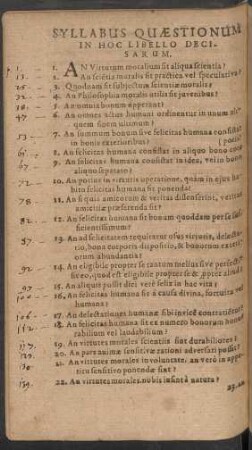 SYLLABUS QUÆSTIONUM
IN HOC LIBELLO DECI-
SARUM.
1. AN Virtutum moralium sit aliqua scientia?
13. 2. An scientia moralis sit practica vel speculativa?
3. Quodnam sit subjectum scientiæ moralis?
32. 4. An Philosophia moralis utilis sit juvenibus?
5. An omnia bonum appetant?
47 6. An omnes actus humani ordinentur in unum ali-
quem finem ultimum?
7. An summum bonum sive felicitas humana consistat
in bonis exterioribus?
8. An felicitas humana consistat in aliquo bono
9. An felicitas humana consistat in idea, vel in bono
aliquo separato?
10. An potius in virtutis operatione, quàm in ejus ha-
bitu felicitas humana sit ponenda?
11. An si quis amicorum & veritas dissentiant, veritas
amicitiæ præferenda sit?
12. An felicitas humana sit bonum quoddam perfectis-
simum?
13. An ad felicitatem requiratur usus virtutis,
rio, bona corporis disposito, & bonorum exteri-
orum abundantia?
92 14. An eligibile propter se tantum melius sive perfectius
sit eo, quod est eligibile propter se &, propter aliud?
97 15. An aliquis possit dici verè felix in hac vita?
16. An felicitas humana sit à causa divina, fortuita vel
humana?
106 17. An delectationes humanæ sibi invicem contrarientur?
112 18. An felicitas humana sit ex numero bonorum hono-
rabilium vel laudabilium?
117. 19. An virtutes morales scientiis sint durabiliores?
20. An pars animæ sensitiva rationi adversari possit?
21. An virtutes morales in voluntate, an verò in appe-
titu sensitivo ponendæ sint?
139. 22. An virtutes morales nobis insint à natura?